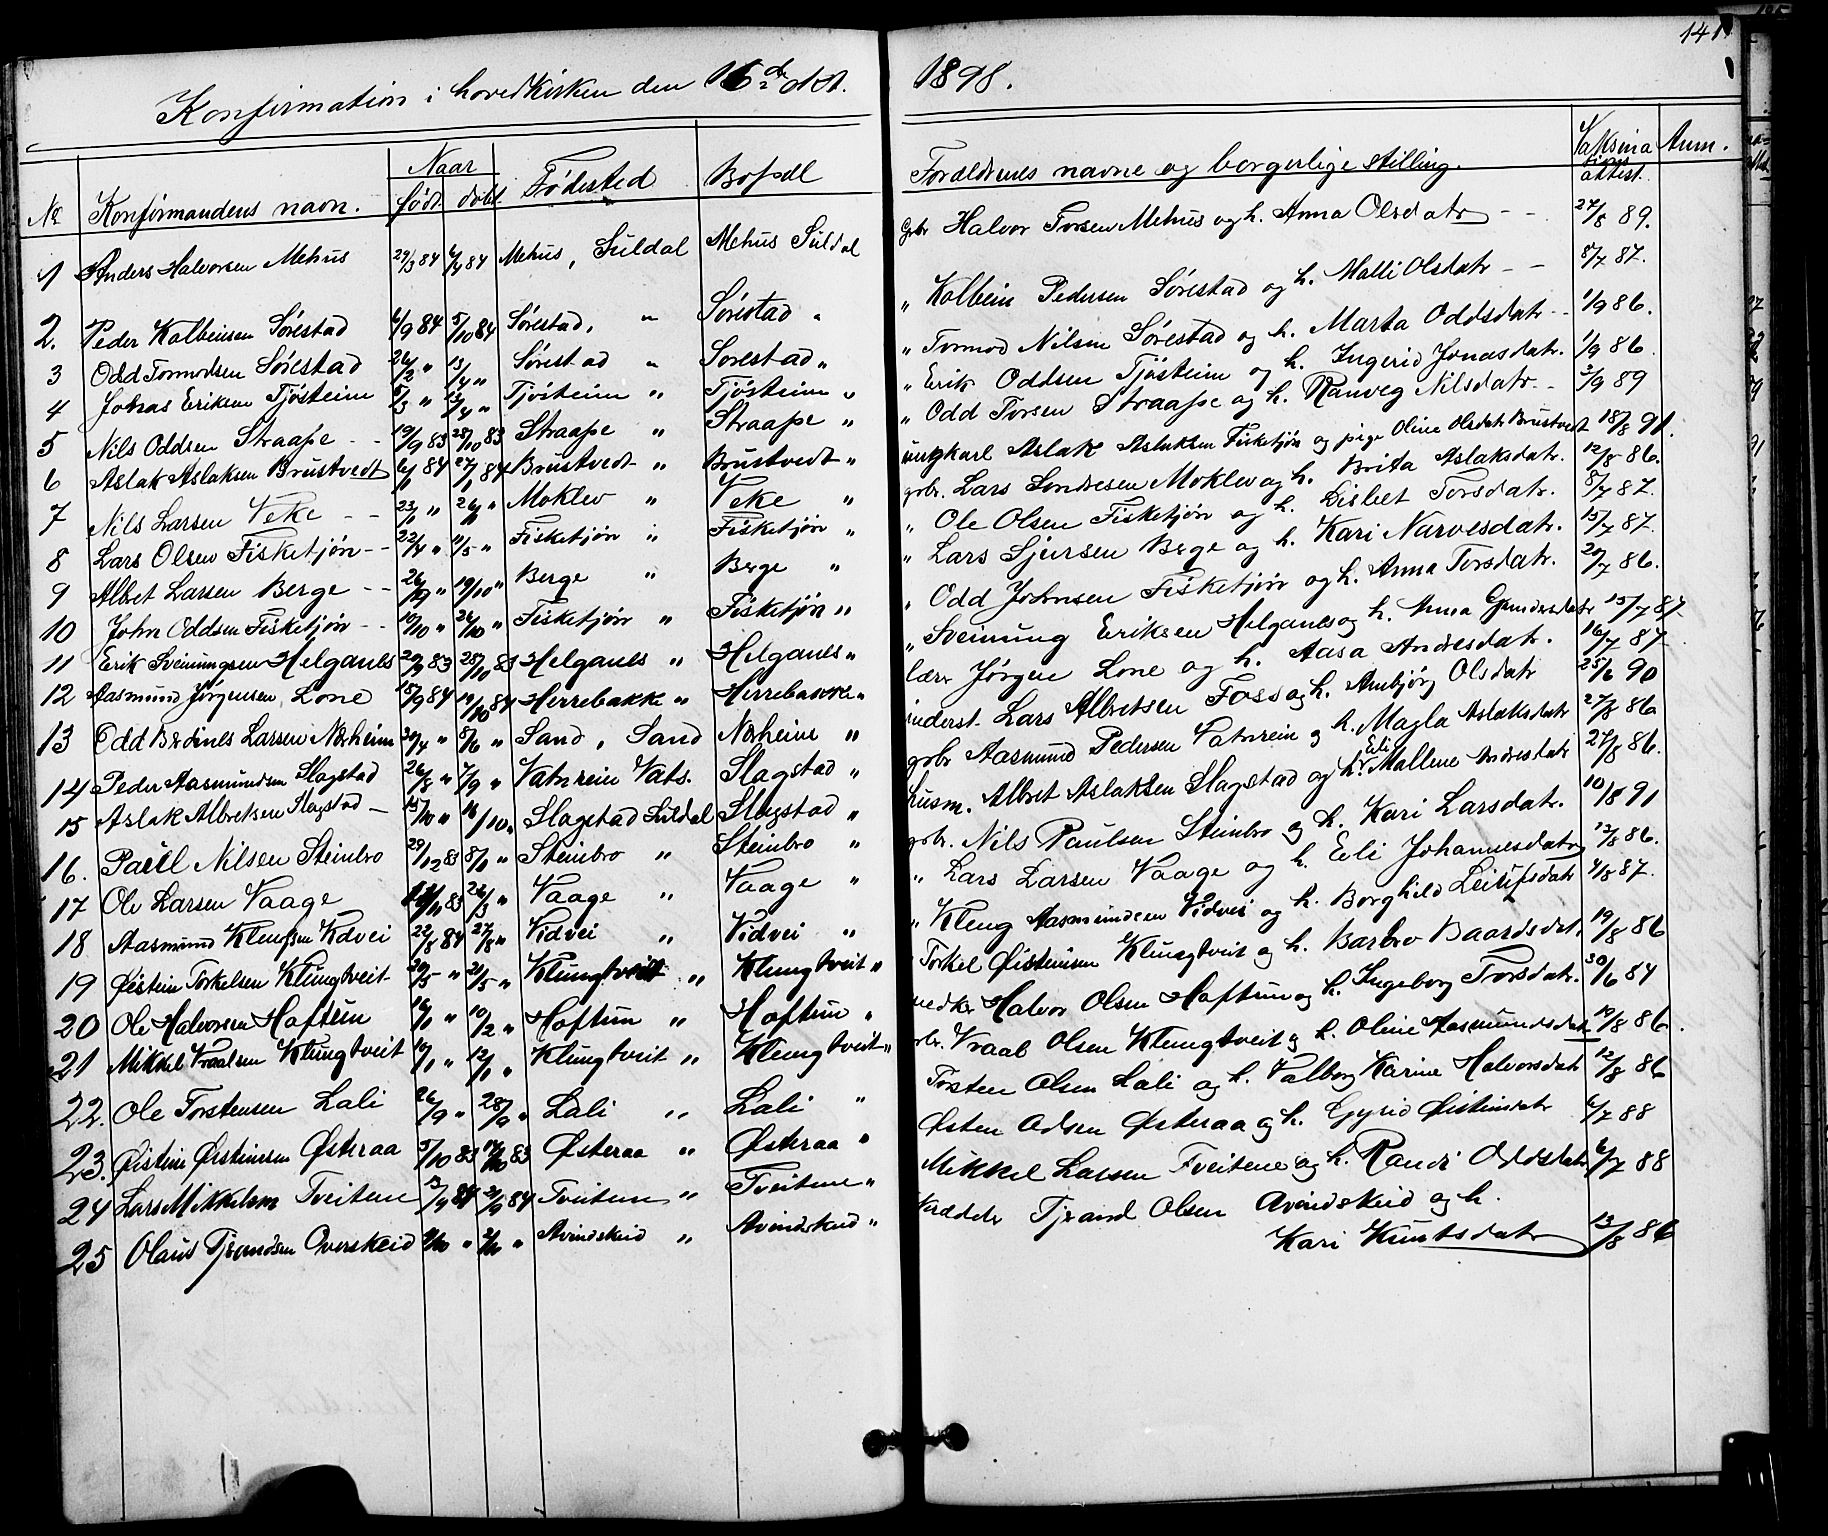 141
Konfirmation i hovedkirken den 16de okt. 1898.
No Konfirmandens navn. Naar født døbt Fødested Bopæl Forældrenes navne og borgerlige stilling. Vaksinationsattest. Anm.
1 Anders Halvorsen Mehus 29/3 84 6/4 84 Mehus, Suldal Mehus Suldal Gbr Halvor Torsen Mehus og h. Anna Olsdatr - - 27/8 89.
2. Peder Kolbeinsen Sørestad 6/9 84 5/10 84 Sørestad, " Sørestad " " Kolbein Pedersen Sørestad og h. Malli Olsdatr - - 8/7 87.
3 Odd Tormodsen Sørestad 26/2 " 13/4 " Sørestad " Sørestad " " Tormod Nilsen Sørestad og h. Marta Oddsdatr - - 1/9 86.
4 Jonas Eriksen Tjøsteim 5/3 " 13/4 " Tjøsteim " Tjøsteim " " Erik Oddsen Tjøsteim og h. Ingerid Jonasdatr. 1/9 86.
5 Nils Oddsen Straape - - 19/9 83 28/10 83 Straape " Straape " " Odd Torsen Straape og h. Ranveg Nilsdatr. - 2/9 89
6 Aslak Aslaksen Brustvedt 6/1 84 27/1 84 Brustvedt " Brustvedt " ungkarl Aslak Aslaksen Fisketjøn og pige Oline Olsdatr Brustvedt 18/8 91.
7 Nils Larsen Veke - - 23/1 " Moklev " Veke " gbr. Lars Sondresen Moklev og h. Brita Aslaksdatr. 12/8 86.
8 Lars Olsen Fisketjøn - - 22/4 " 11/5 " Fisketjøn " Fisketjøn " " Ole Olsen Fisketjøn og h. Lisbet Torsdatr. 8/7 87.
9 Albret Larsen Berge - - 26/9 " 19/10 " Berge " Berge " " Lars Sjursen Berge og h. Kari Narvesdatr. 15/7 87.
10 John Oddsen Fisketjøn - - 10/10 " 26/10 " Fisketjøn " Fisketjøn " " Odd Johnsen Fisketjøn og h. Anna Torsdatr. 20/7 86.
11 Erik Sveinungsen Helganes 83 28/10 83 Helganes " Helganes " " Sveinung Eriksen Helganes og h. Anna Gundersdatr 15/7 87
12 Aasmund Jørgensen Lone 15/9 84 19/10 84 Herrebakke " Herrebakke " lærer Jørgen Lone og h. Aasa Andresdatr. 16/7 87
13 Odd Berdines Larsen Nærheim 30/4 " 8/6 " Sand, Sand Nærheim " inderst. Lars Albretsen Foss og h. Anbjørg Olsdatr 25/6 90
14 Peder Aasmundsen Slagstad 26/8 " 7/9 " Vatnrein Vats. Slagstad " gbr Aasmund Pedersen Vatnrein og h. Magla Aslaksdatr 27/8 86
15 Aslak Albretsen Slagstad - 15/10 " /10 " Slagstad Suldal Slagstad " husm. Albret Aslaksen Slagstad og h. Eli Mallene Andresdatr 27/8 86.
16. Paul Nilsen Steinbro 29/12 83 8/1 " Steinbro " Steinbro " gbr. Nils Paulsen Steinbro og h. Kari Larsdatr. 10/8 91
17 Ole Larsen Vaage 83 26/3 " Vaage " Vaage " " Lars Larsen Vaage og h. Eli Johannesdatr 12/8 86.
18 Aasmund Klengsen Vidvei 22/8 84 27/8 " Vidvei " Vidvei " " Kleng Aasmundsen Vidvei og h. Borghild Leiulfsdatr 4/8 87.
19 Øistein Torkelsen Klungtveit 20/5 " 21/5 " Klungtveit " Klungtveit " Torkel Øisteinsen Klungtveit og h. Barbro Baardsdat. 19/8 86
20 Ole Halvorsen Hoftun 16/1 " 10/2 " Hoftun " Hoftun " Halvor Olsen Hoftun og h. Ingeborg Torsdatr. 30/6 84
21 Mikkel Vraalsen Klungtveit 10/1 " 12/1 " Klungtveit " Klungtveit " gbr. Vraal Olsen Klungtveit og h. Oline Aasmundsdatr 19/8 86.
22. Ole Torstensen Lali 26/9 " 28/9 " Lali " Lali " Torsten Olsen Lali og h. Valborg Karine Halvorsdatr 12/8 86
23. Øistein Øisteinsen Østeraa 5/10 83 83 Østeraa " Østeraa " Østen Olsen Østeraa og h. Gyrid Øisteinsdatr 6/7 88
24 Lars Mikkelsen Tveitene 13/9 84 21/9 84 Tveitene " Tveitene " Mikkel Larsen Tveitene og h. Randi Oddsdatr 6/7 88
25 Olaus Tjerandsen Overskeid " " Avindskeid " Avindskeid " Tjerand Olsen Avindskeid og h.
Kari Knutsdatr 13/8 86